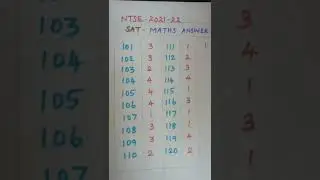 NTSE-2021-22
SAT - MATHS ANSWER
101 3 111 1
102 3 112 2
103 2 113 3
104 4 114 4
105 4 115 1
106 4 116 3
107 1 117 1
108 3 118 1
109 3 119 4
110 2 120 2